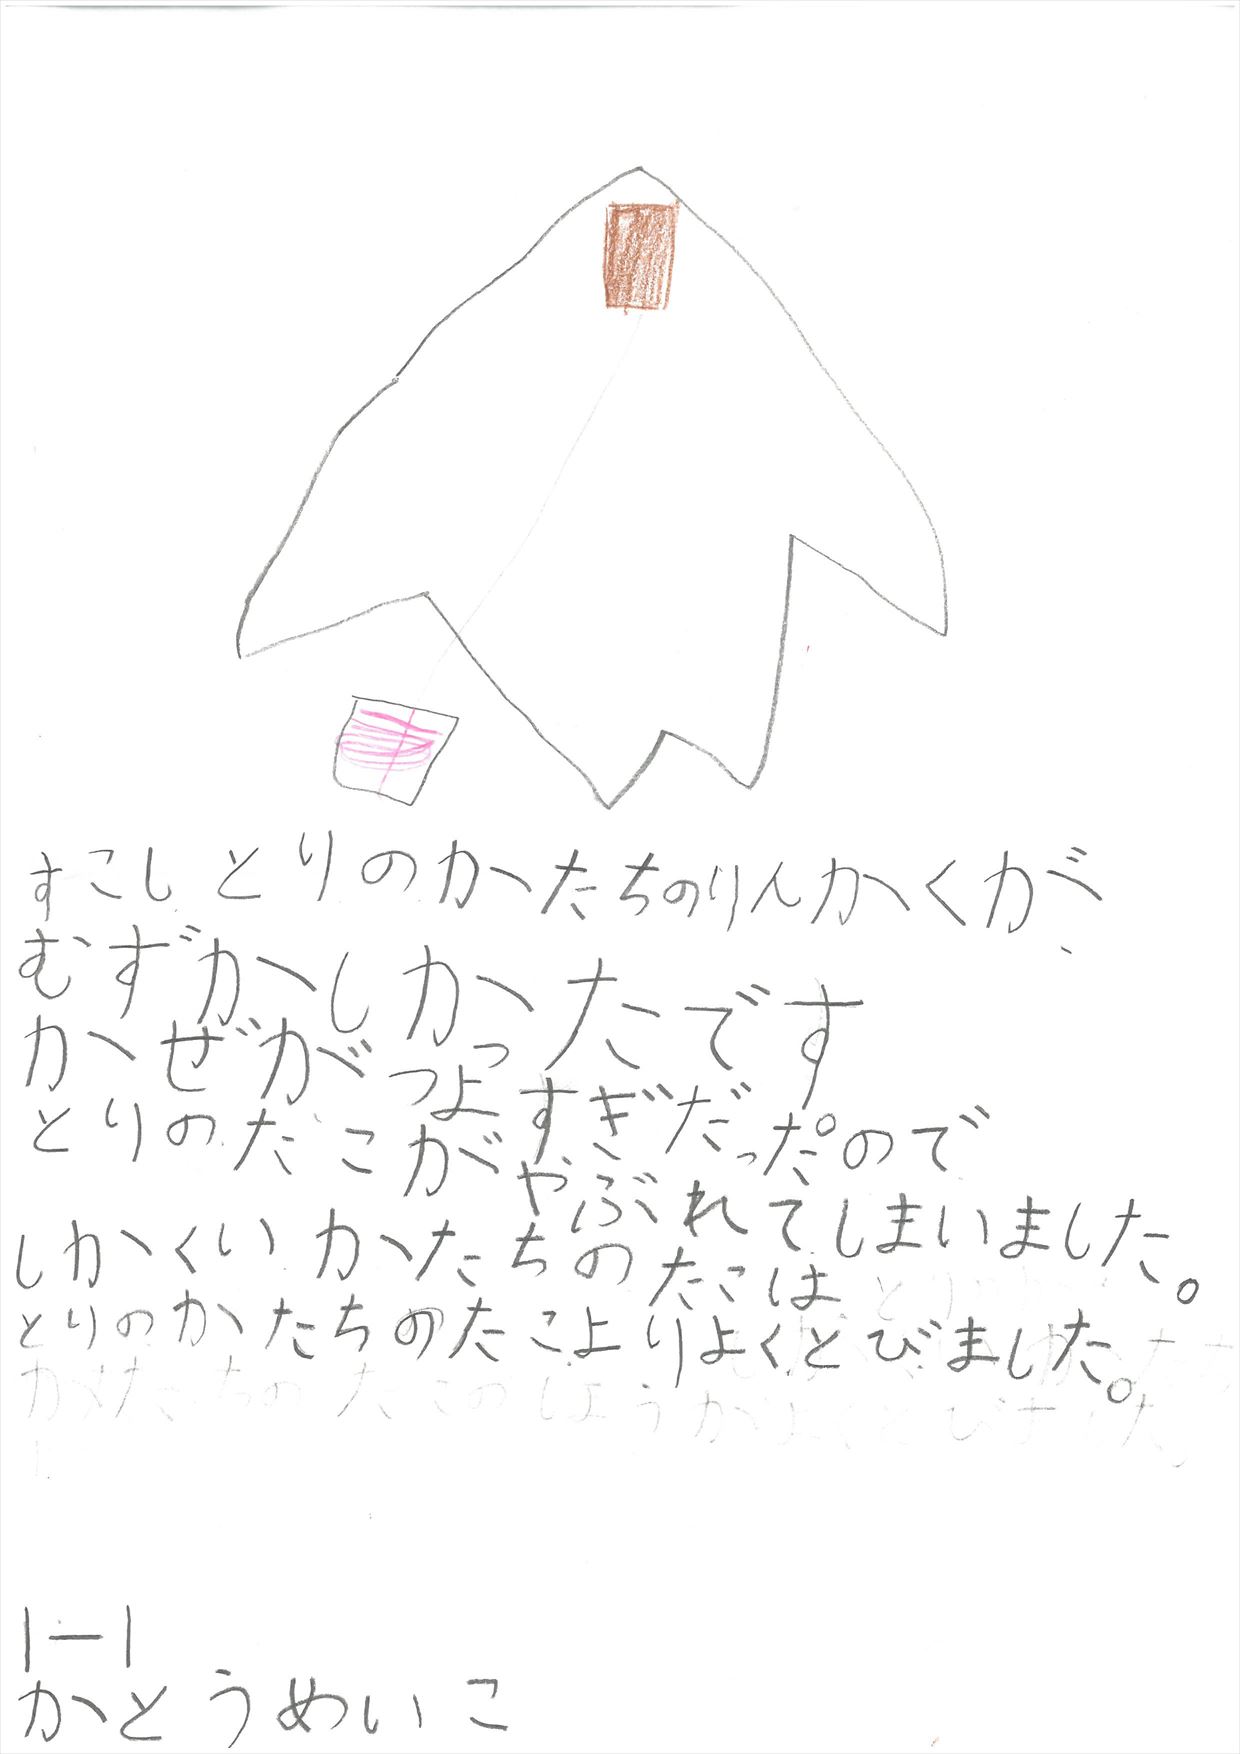 すこしとりのかたちのりんかくが、
むずかしかったです
かぜがつよすぎだったので
とりのたこがやぶれてしまいました。
しかくいかたちのたこは
とりのかたちのたこよりよくとびました。
1-1
かとうめいこ